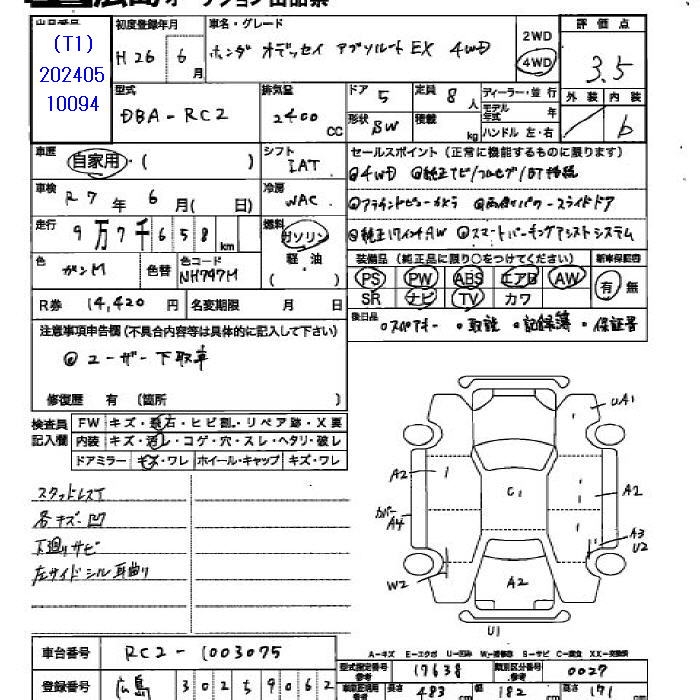 オークション出品票
(T1)
202405
10094
初度登録年月
H26 6月
車名・グレード
ホンダ オデッセイ アブソルート EX 4WD
2WD
4WD
評価点
3.5
外装 内装
b
型式
DBA-RC2
排気量
2400 CC
ドア 5
定員 8人
形状 SW
積載 kg
ディーラー・並行
モデル年式 年
ハンドル 左・右
車歴
自家用・( )
シフト
IAT
セールスポイント (正常に機能するものに限ります)
◎4WD ◎純正ナビ/フルセグ/BT接続
◎アラウンドビューカメラ ◎両側パワースライドドア
◎純正17インチAW ◎スマートパーキングアシストシステム
車検
R7年 6月( 日)
冷房
WAC
走行
9万7千658km
燃料
ガソリン
軽油
( )
色
ガンM
色替
色コード
NH797M
装備品 (純正品に限り○をつけてください)
PS PW ABS エアB AW
SR ナビ TV カワ
新車保証書
有 無
R券 14,420円
名変期限 月 日
後日品
○スペアキー ○取説 ○記録簿 ・保証書
注意事項申告欄(不具合内容等は具体的に記入して下さい)
◎ユーザー下取車
修復歴 有 (箇所 )
検査員記入欄
FW キズ・飛石・ヒビ割・リペア跡・X要
内装 キズ・汚レ・コゲ・穴・スレ・ヘタリ・破レ
ドアミラー キズ・ワレ ホイール・キャップ キズ・ワレ
スタッドレスT
各キズ凹
下廻りサビ
左サイドシル耳曲り
UA1
A2
C1
A2
カバーA4
A3
U2
W2
A2
U1
車台番号 RC2-1003075
登録番号 広島 302 5 9062
A-キズ E-エクボ U-凹み W-補修跡 S-サビ C-腐食 XX-交換済
型式指定番号 参考 17638
類別区分番号 参考 0027
長さ 483 cm 幅 182 cm 高さ 171